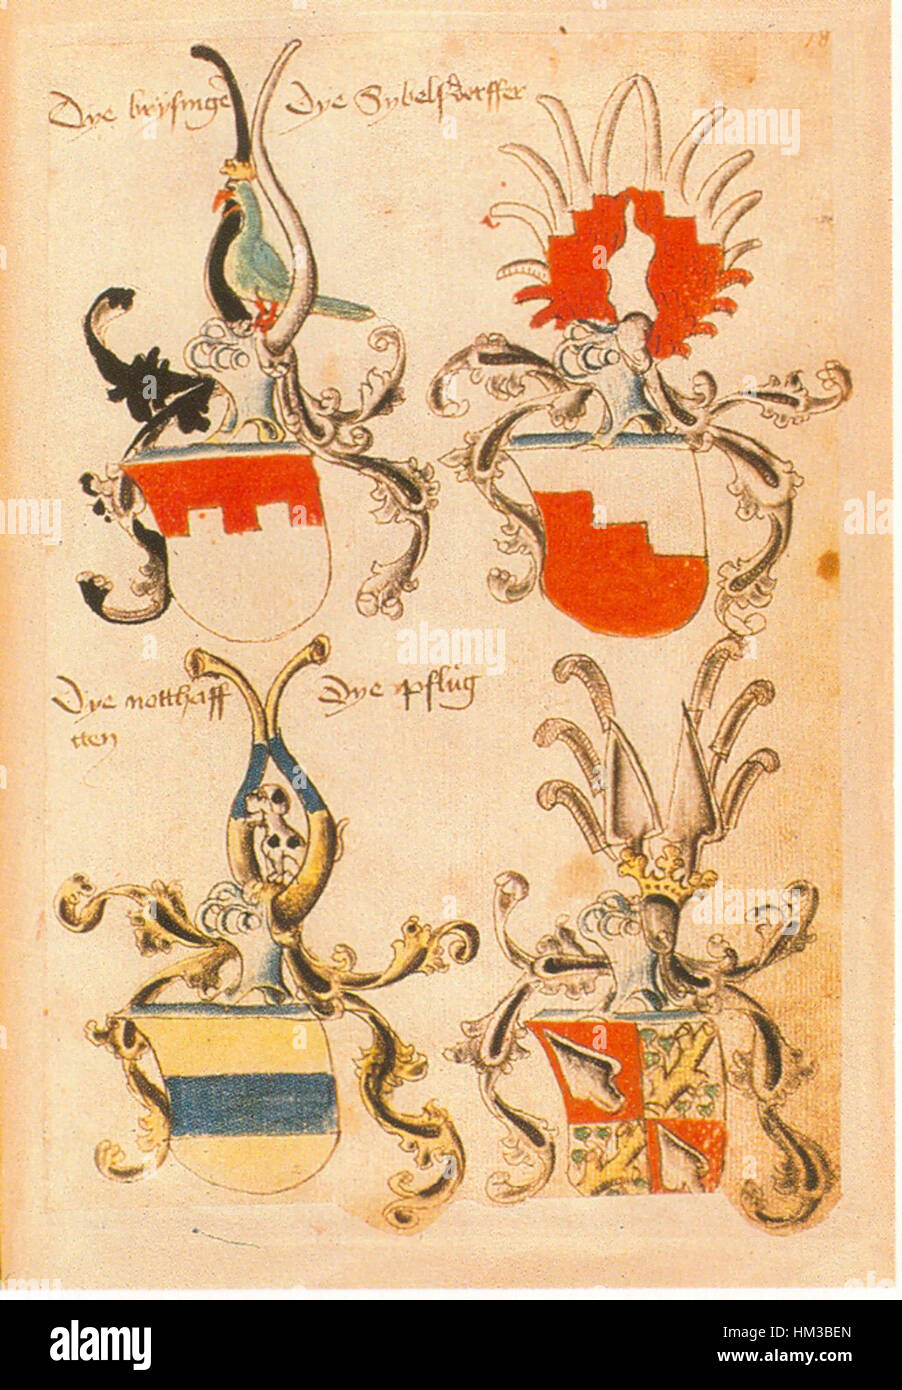 18
Dye brysinge
Dye Sybelsderffer
Dye notthaff
tten
Dye pflug
alamy
Image ID: HM3BEN
www.alamy.com